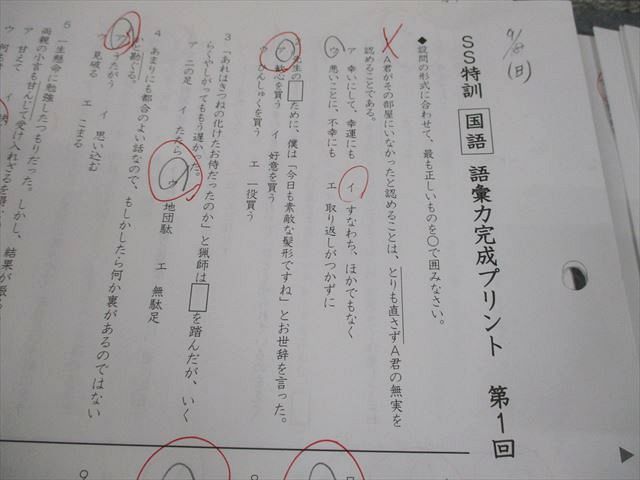 9/8(日)
SS特訓 国語 語彙力完成プリント 第1回
◆設問の形式に合わせて、最も正しいものを○で囲みなさい。
A君がその部屋にいなかったと認めることは、とりも直さずA君の無実を
認めることである。
ア 幸いにして、幸運にも イ すなわち、ほかでもなく
ウ 悪いことに、不幸にも エ 取り返しがつかずに
先生の□ために、僕は「今日も素敵な髪形ですね」とお世辞を言った。
ア 歓心を買う イ 好意を買う
ウ ひんしゅくを買う エ 一役買う
3 「あれはきつねの化けたお侍だったのか」と猟師は□を踏んだが、いく
らくやしがってももう遅かった。
ア 二の足 イ たたら ウ 地団駄 エ 無駄足
4 あまりにも都合のよい話なので、もしかしたら何か裏があるのではない
と勘ぐる。
ア うたがう イ 思い込む
ウ 見破る エ こまる
5 一生懸命に勉強したつもりだった。しかし、結果が
両親の小言も甘んじて受け入れざるを得
ア 甘えて イ
ウ 何